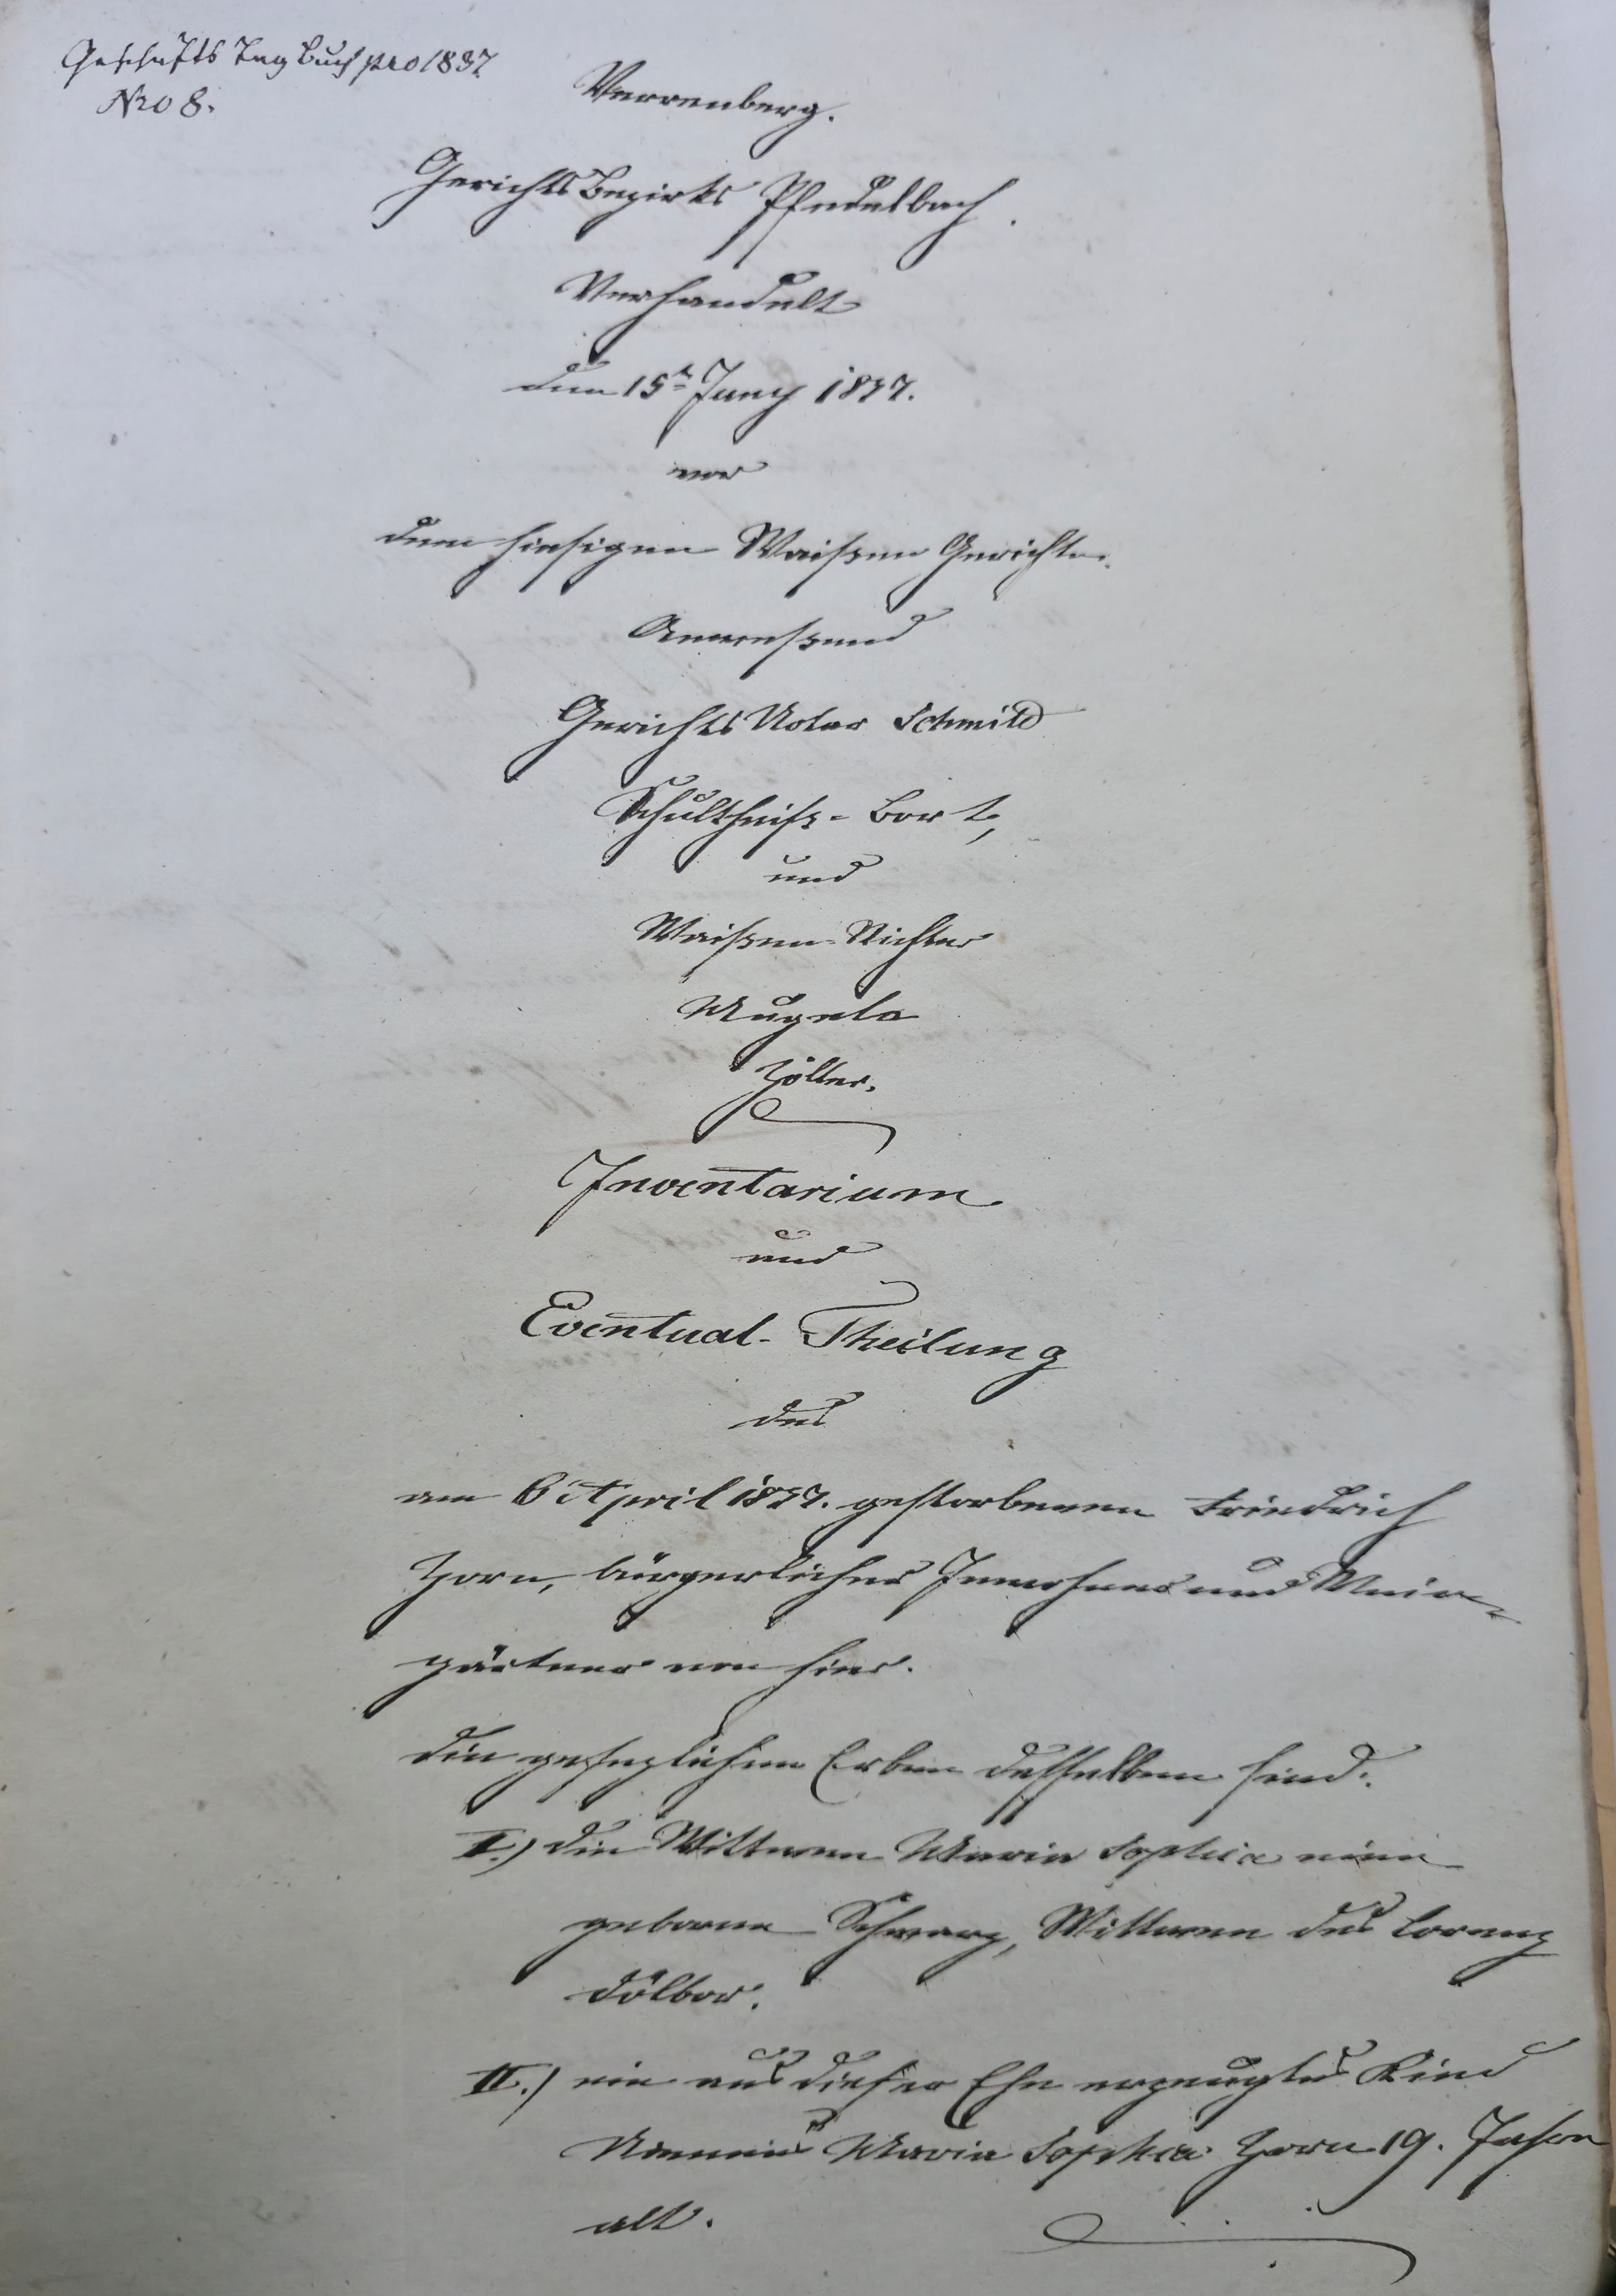 Geschäfts Tag Buch pro 1837
Nro 8.
Verrenberg.
Gerichts Bezirks Pfedelbach.
Verhandelt
den 15t. Juny 1837.
vor
dem hiesigen Waisen Gerichte.
Anwesend
Gerichts Notar Schmid
Schultheiß Bort,
und
Waisen-Richter
Mugele
Zöller.
Inventarium
und
Eventual-Theilung
des
am 6t April 1837. gestorbenen Friedrich
Zorn, bürgerlicher Innwohner und Wein-
gärtner von hier.
Die gesezlichen Erben desselben sind:
I.) die Wittwe Maria Sophia eine
geborne Schwarz, Wittwe des Lorenz
Dölbor.
II.) ein aus dieser Ehe erzeugtes Kind
Namens Maria Sophia Zorn 19. Jahre
alt.